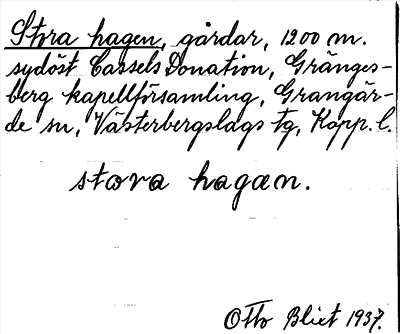 Stora hagen, gårdar, 1200 m.
sydöst Cassels Donation, Gränges-
berg kapellförsamling, Grangär-
de sn, Västerbergslags tg, Kopp. l.
stora hagan.
Otto Blixt 1937.